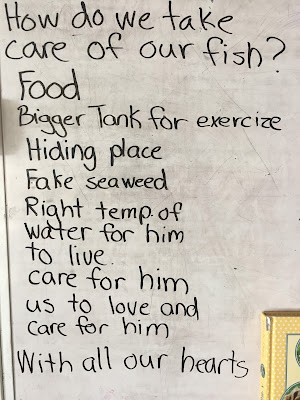 How do we take
care of our fish?
Food
Bigger Tank for exercize
Hiding place
Fake seaweed
Right temp. of
water for him
to live.
care for him
us to love and
care for him
With all our hearts